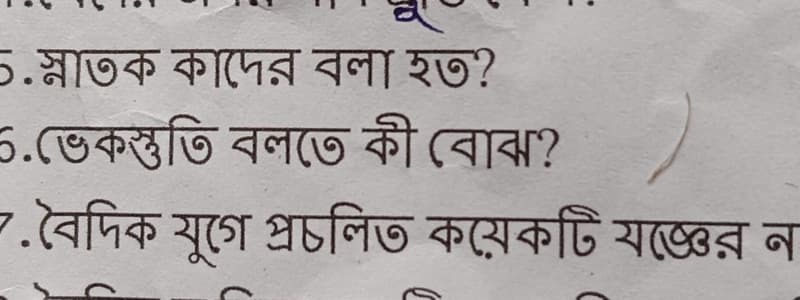 5. স্নাতক কাদের বলা হত?
6. ভেকস্তুতি বলতে কী বোঝ?
7. বৈদিক যুগে প্রচলিত কয়েকটি যজ্ঞের ন